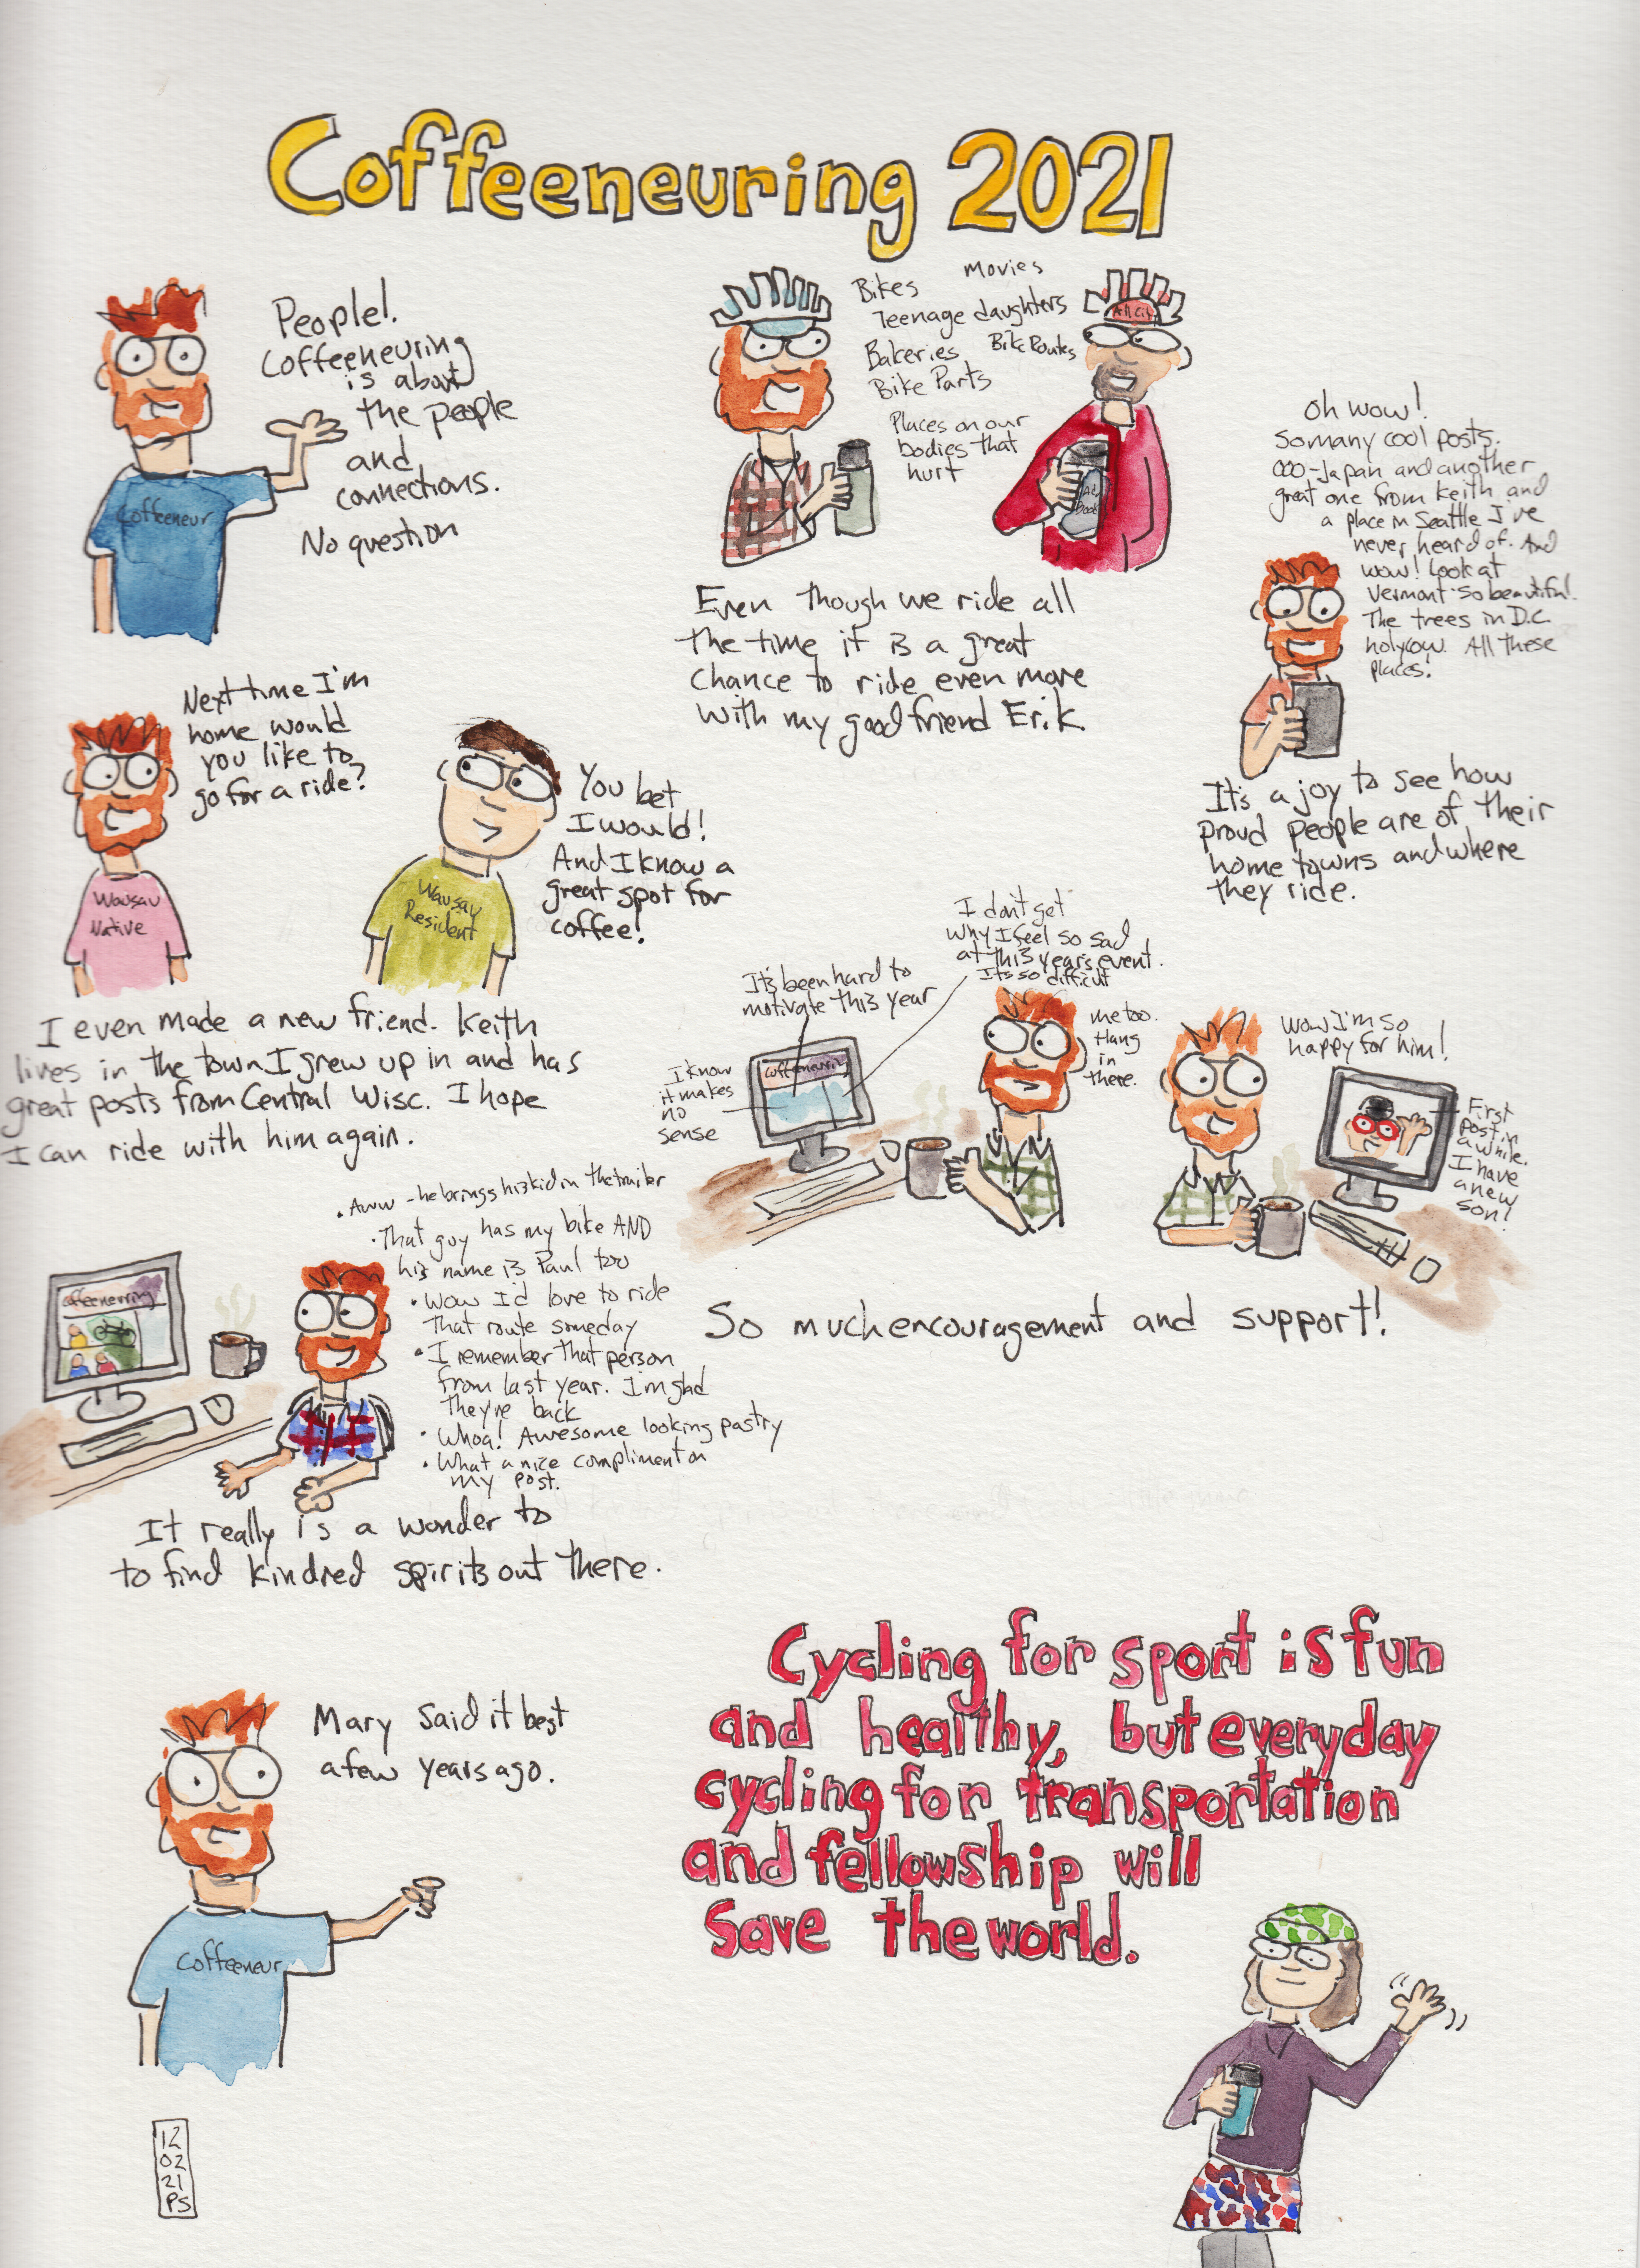 Coffeeneuring 2021
People!
Coffeeneuring
is about
the people
and
connections.
No question
Coffeeneur
Bikes
Movies
Teenage daughters
Bakeries
Bike Routes
Bike Parts
Places on our
bodies that
hurt
All City
Even though we ride all
the time it is a great
chance to ride even more
with my good friend Erik.
Oh wow!
So many cool posts.
ooo-Japan and another
great one from Keith and
a place in Seattle I've
never heard of. And
wow! Look at
Vermont so beautiful!
The trees in D.C.
holy cow. All these
places!
It's a joy to see how
proud people are of their
home towns and where
they ride.
Next time I'm
home would
you like to
go for a ride?
Wausau
Native
You bet
I would!
And I know a
great spot for
coffee!
Wausau
Resident
I even made a new friend. Keith
lives in the town I grew up in and has
great posts from Central Wisc. I hope
I can ride with him again.
I don't get
why I feel so sad
at this year's event.
It's so difficult
It's been hard to
motivate this year
I know
it makes
no
sense
Coffeeneuring
me too.
Hang
in
there.
Wow I'm so
happy for him!
First
post in
a while.
I have
a new
son!
So much encouragement and support!
Coffeeneuring
• Aww - he brings his kid in the trailer
• That guy has my bike AND
his name is Paul too
• Wow I'd love to ride
That route someday
• I remember that person
from last year. I'm glad
they're back
• Whoa! Awesome looking pastry
• What a nice compliment on
my post.
It really is a wonder to
to find kindred spirits out there.
Mary said it best
a few years ago.
Coffeeneur
Cycling for sport is fun
and healthy, but everyday
cycling for transportation
and fellowship will
save the world.
12
02
21
PS